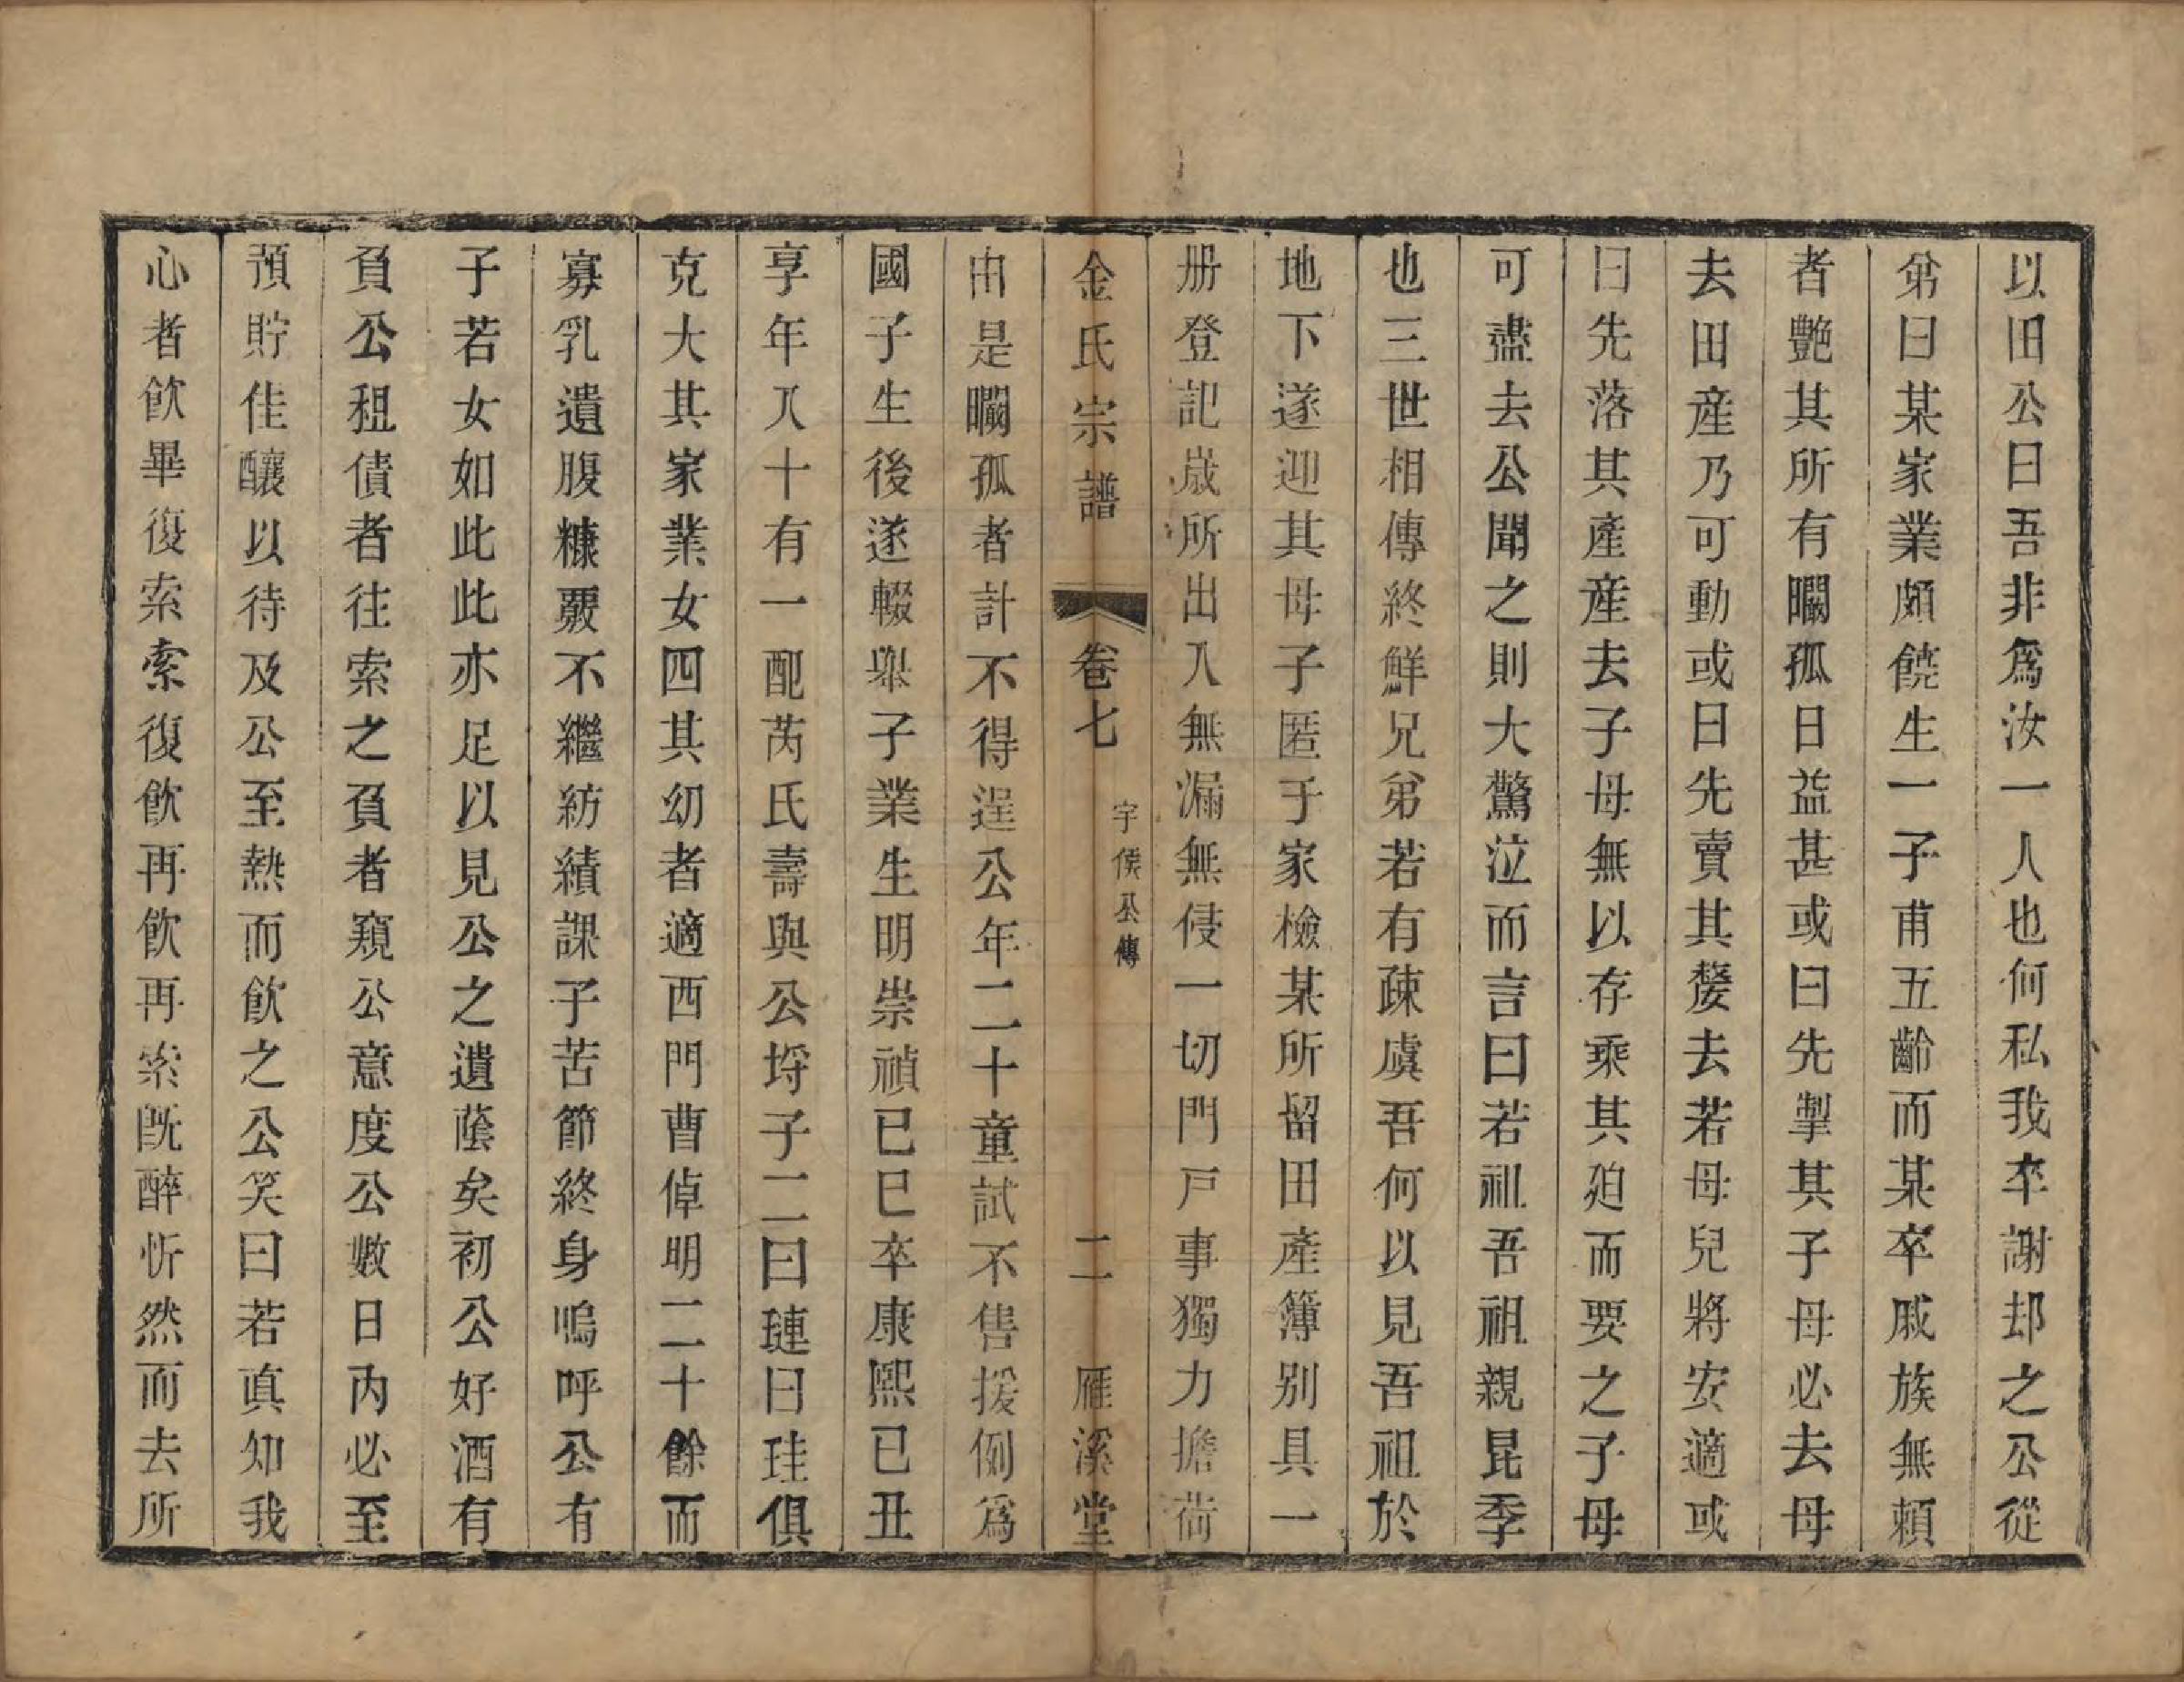 以田公曰吾非爲汝一人也何私我卒謝却之公從
弟曰某家業頗饒生一子甫五齡而某卒戚族無賴
者艷其所有矙孤日益甚或曰先掣其子母必去母
去田産乃可動或曰先賣其嫠去若母兒將安適或
曰先落其產産去子母無以存乘其殆而要之子母
可盡去公聞之則大驚泣而言曰若祖吾祖親昆季
也三世相傳終鮮兄弟若有疎虞吾何以見吾祖於
地下遂迎其母子匿于家檢某所留田產簿别具一
册登記歲所出入無漏無侵一切門戸事獨力擔荷
金氏宗譜 卷七 宇侯公傳 二 雁溪堂
由是矙孤者計不得逞公年二十童試不售援例爲
國子生後遂輟舉子業生明崇禎己巳卒康熙己丑
享年八十有一配芮氏壽與公埒子二曰璉曰珪俱
克大其家業女四其幼者適西門曹倬明二十餘而
寡乳遺腹糠覈不繼紡績課子苦節終身嗚呼公有
子若女如此此亦足以見公之遺蔭矣初公好酒有
負公租債者往索之負者窺公意度公數日内必至
預貯佳釀以待及公至熱而飮之公笑曰若真知我
心者飮畢復索索復飮再飮再索既醉忻然而去所